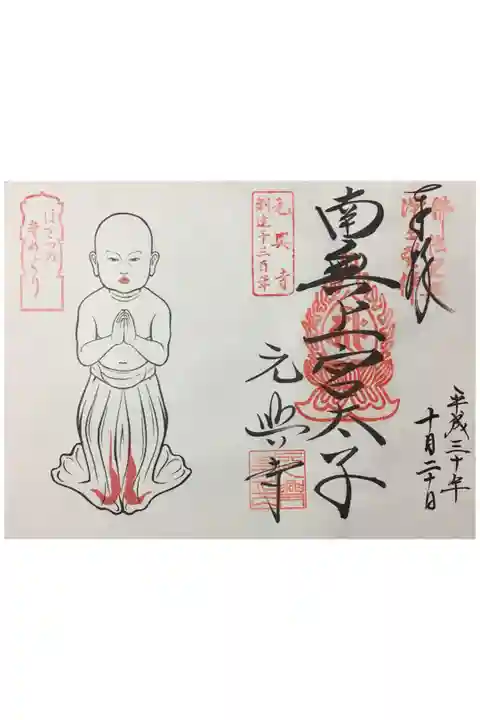 奉拝
平成三十年
十月二十日
南無上宮太子
元興寺
創建千三百年
元興寺
ほとけの
寺めぐり